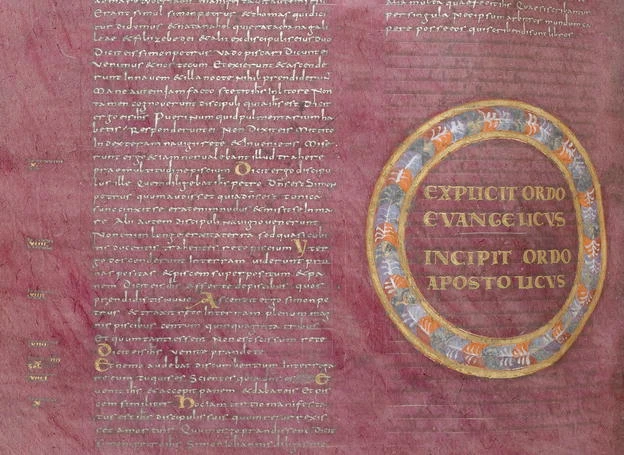 Erant simul simonpetrus & thomas quidici
tur didimus & nathanahel quierat achanagali
leae & filii zebedei & alii exdiscipulis eius duo
Dicit eis simonpetrus vado piscari Dicunt ei
venimus & nos tecum Et exierunt & ascende
runt Innauem & illa nocte nihil prendiderunt
Mane autem Iam facto stetit ihs Inlitore Non
tamen cognouerunt discipuli quia ihs est Dicit
ergo eis ihs Pueri Numquid pulmentarium ha
betis Responderunt Non Dixit eis Mittite
Indexteram nauigii rete & Inuenietis Mise
runt ergo & iam non ualebant illud trahere
praemultitudine piscium Dicit ergo discipu
lus ille Quem diligebat ihs petro Dns est Simon
petrus quum audisset quia dns est tunica
succinxit se erat enim nudus & misit se Inma
re Alii autem discipuli nauigio uenerunt
Non enim longe erant aterra sed quasi cubi
tis ducentis trahentes rete piscium Vt er
go discenderunt Interram uiderunt pru
nas positas & piscem superpositum & pa
nem Dicit eis ihs afferte depiscibus quos
prendidistis nunc Ascendit ergo simonpe
trus & traxit rete Interram plenum mag
nis piscibus centum quinquaginta tribus
Et quum tanti essent Non est scissum rete
Dicit eis ihs venite prandete
Et nemo audebat discumbentium Interroga
re eum tu quis es Scientes quia dns est Et
uenit ihs & accepit panem & dabat eis Et pis
cem similiter Hoc iam tertio manifesta
tus est ihs discipulis suis quum resurrexis
set amortuis Quum ergo prandissent Dicit
simonipetro ihs Simon Iohannis diligis me
per singula
EXPLICIT ORDO
EVANGELICVS
INCIPIT ORDO
APOSTOLICVS